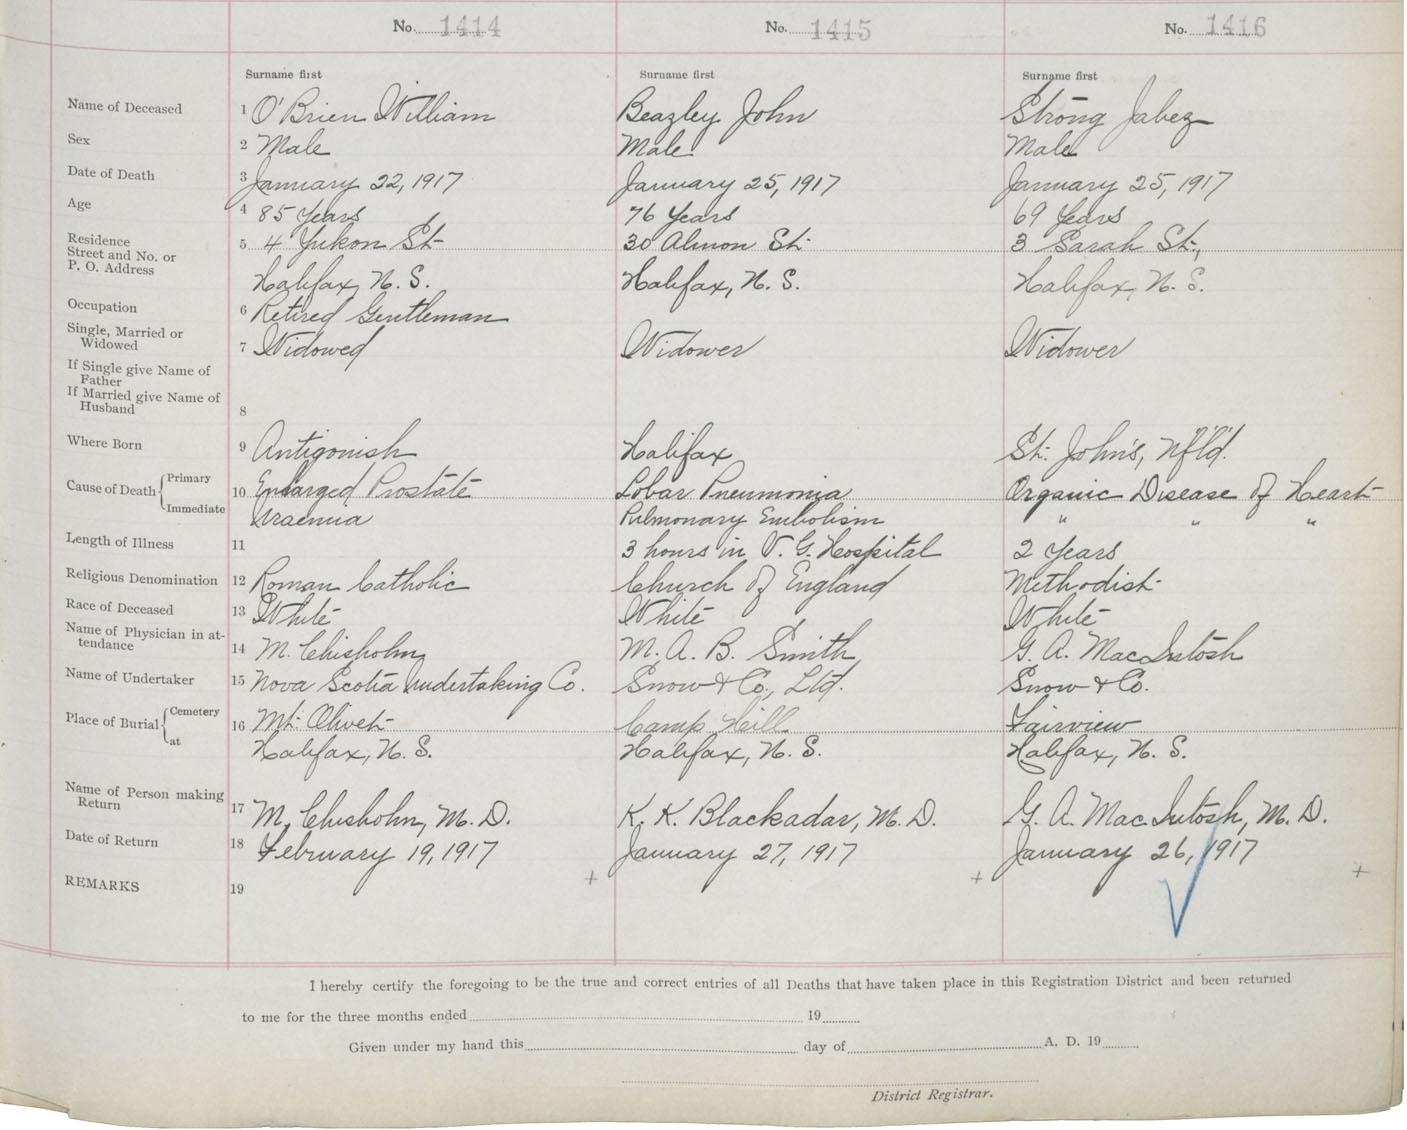 No. 1414 No. 1415 No. 1416
Surname first Surname first Surname first
Name of Deceased 1 O'Brien William Beazley John Strong Jabez
Sex 2 Male Male Male
Date of Death 3 January 22, 1917 January 25, 1917 January 25, 1917
Age 4 85 Years 76 Years 69 Years
Residence
Street and No. or 5 4 Yukon St. 30 Almon St. 3 Sarah St.,
P. O. Address Halifax, N. S. Halifax, N. S. Halifax, N. S.
Occupation 6 Retired Gentleman
Single, Married or
Widowed 7 Widowed Widower Widower
If Single give Name of
Father
If Married give Name of
Husband 8
Where Born 9 Antigonish Halifax St. John's, Nf'ld.
Cause of Death Primary 10 Enlarged Prostate Lobar Pneumonia Organic Disease of Heart
Immediate Uraemia Pulmonary Embolism " " "
Length of Illness 11 3 hours in V. G. Hospital 2 Years
Religious Denomination 12 Roman Catholic Church of England Methodist
Race of Deceased 13 White White White
Name of Physician in at-
tendance 14 M. Chisholm M. A. B. Smith G. A. MacIntosh
Name of Undertaker 15 Nova Scotia Undertaking Co. Snow & Co., Ltd. Snow & Co.
Place of Burial Cemetery 16 Mt. Olivet Camp Hill Fairview
at Halifax, N. S. Halifax, N. S. Halifax, N. S.
Name of Person making
Return 17 M. Chisholm, M. D. K. K. Blackadar, M. D. G. A. MacIntosh, M. D.
Date of Return 18 February 19, 1917 January 27, 1917 January 26, 1917
REMARKS 19 + + +
I hereby certify the foregoing to be the true and correct entries of all Deaths that have taken place in this Registration District and been returned
to me for the three months ended 19
Given under my hand this day of A. D. 19
District Registrar.